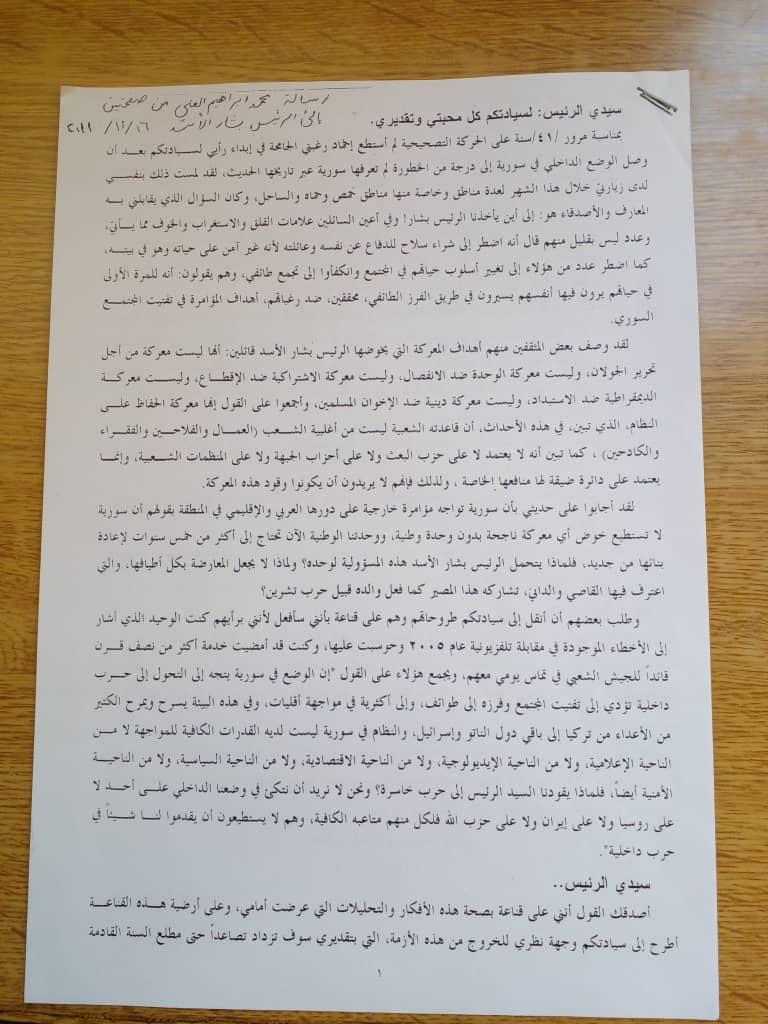 رسالة محمد ابراهيم العلي من صفحتين
إلى الرئيس بشار الأسد ١٦ / ١٢ / ٢٠١١
سيدي الرئيس: لسيادتكم كل محبتي وتقديري.
بمناسبة مرور /٤١/سنة على الحركة التصحيحية لم أستطع إخماد رغبتي الجامحة في إبداء رأيي لسيادتكم بعد أن
وصل الوضع الداخلي في سورية إلى درجة من الخطورة لم تعرفها سورية عبر تاريخها الحديث، لقد لمست ذلك بنفسي
لدى زيارتي خلال هذا الشهر لعدة مناطق وخاصة منها مناطق حمص وحماه والساحل، وكان السؤال الذي يقابلني به
المعارف والأصدقاء هو: إلى أين يأخذنا الرئيس بشار! وفي أعين السائلين علامات القلق والاستغراب والخوف مما يأتي،
وعدد ليس بقليل منهم قال أنه اضطر إلى شراء سلاح للدفاع عن نفسه وعائلته لأنه غير آمن على حياته وهو في بيته،
كما اضطر عدد من هؤلاء إلى تغيير أسلوب حياتهم في المجتمع وانكفأوا إلى تجمع طائفي، وهم يقولون: أنه للمرة الأولى
في حياتهم يرون فيها أنفسهم يسيرون في طريق الفرز الطائفي، محققين، ضد رغباتهم، أهداف المؤامرة في تفتيت المجتمع
السوري.
لقد وصف بعض المثقفين منهم أهداف المعركة التي يخوضها الرئيس بشار الأسد قائلين: أنها ليست معركة من أجل
تحرير الجولان، وليست معركة الوحدة ضد الانفصال، وليست معركة الاشتراكية ضد الإقطاع، وليست معركة
الديمقراطية ضد الاستبداد، وليست معركة دينية ضد الإخوان المسلمين، وأجمعوا على القول إنها معركة الحفاظ على
النظام، الذي تبين، في هذه الأحداث، أن قاعدته الشعبية ليست من أغلبية الشعب (العمال والفلاحين والفقراء
والكادحين) ، كما تبين أنه لا يعتمد لا على حزب البعث ولا على أحزاب الجبهة ولا على المنظمات الشعبية، وإنما
يعتمد على دائرة ضيقة لها منافعها الخاصة ، ولذلك فإنهم لا يريدون أن يكونوا وقود هذه المعركة.
لقد أجابوا على حديثي بأن سورية تواجه مؤامرة خارجية على دورها العربي والإقليمي في المنطقة بقولهم أن سورية
لا تستطيع خوض أي معركة ناجحة بدون وحدة وطنية، ووحدتنا الوطنية الآن تحتاج إلى أكثر من خمس سنوات لإعادة
بنائها من جديد، فلماذا يتحمل الرئيس بشار الأسد هذه المسؤولية لوحده؟ ولماذا لا يجعل المعارضة بكل أطيافها، والتي
اعترف فيها القاصي والداني، تشاركه هذا المصير كما فعل والده قبيل حرب تشرين؟
وطلب بعضهم أن أنقل إلى سيادتكم طروحاتهم وهم على قناعة بأنني سأفعل لأنني برأيهم كنت الوحيد الذي أشار
إلى الأخطاء الموجودة في مقابلة تلفزيونية عام ٢٠٠٥ وحوسبت عليها، وكنت قد أمضيت خدمة أكثر من نصف قرن
قائداً للجيش الشعبي في تماس يومي معهم، ويجمع هؤلاء على القول "إن الوضع في سورية يتجه إلى التحول إلى حرب
داخلية تؤدي إلى تفتيت المجتمع وفرزه إلى طوائف، وإلى أكثرية في مواجهة أقليات، وفي هذه البيئة يسرح ويمرح الكثير
من الأعداء من تركيا إلى باقي دول الناتو وإسرائيل، والنظام في سورية ليست لديه القدرات الكافية للمواجهة لا من
الناحية الإعلامية، ولا من الناحية الإيديولوجية، ولا من الناحية الاقتصادية، ولا من الناحية السياسية، ولا من الناحية
الأمنية أيضاً، فلماذا يقودنا السيد الرئيس إلى حرب خاسرة؟ ونحن لا نريد أن نتكئ في وضعنا الداخلي على أحد لا
على روسيا ولا على إيران ولا على حزب الله فلكل منهم متاعبه الكافية، وهم لا يستطيعون أن يقدموا لنا شيئاً في
حرب داخلية".
سيدي الرئيس..
أصدقك القول أنني على قناعة بصحة هذه الأفكار والتحليلات التي عرضت أمامي، وعلى أرضية هذه القناعة
أطرح إلى سيادتكم وجهة نظري للخروج من هذه الأزمة، التي بتقديري سوف تزداد تصاعداً حتى مطلع السنة القادمة
١